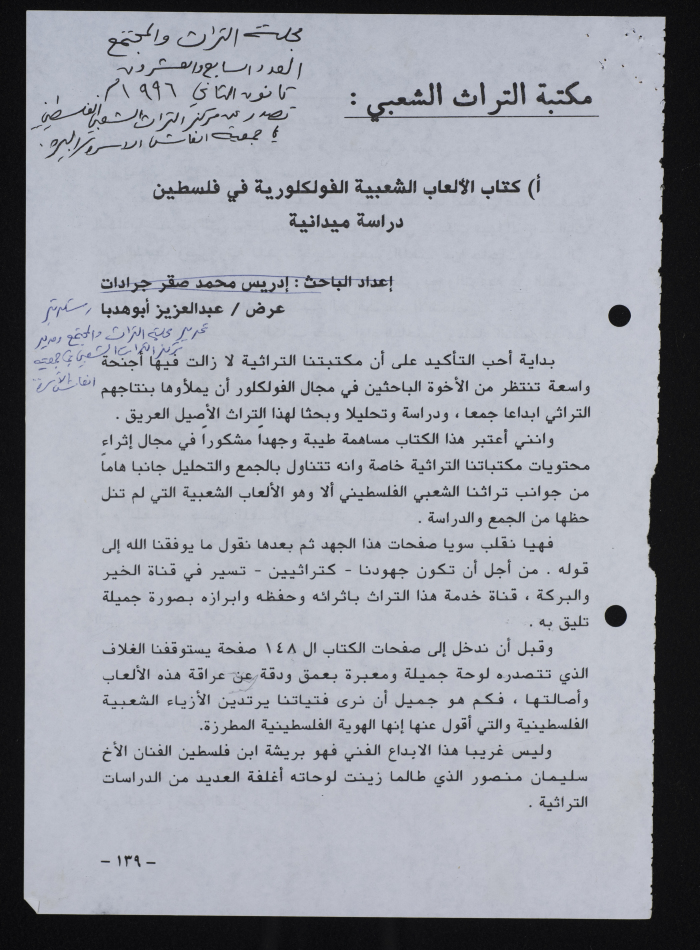 مجلة التراث والمجتمع
العدد السابع والعشرون
كانون الثاني ١٩٩٦م
تصدر عن مركز التراث الشعبي الفلسطيني
في جمعية انعاش الاسرة البيرة.
مكتبة التراث الشعبي :
أ) كتاب الألعاب الشعبية الفولكلورية في فلسطين
دراسة ميدانية
إعداد الباحث : إدريس محمد صقر جرادات
عرض / عبدالعزيز أبوهدبا
تحرير مجلة التراث والمجتمع ومدير
مركز التراث الشعبي في جمعية
انعاش الأسرة
بداية أحب التأكيد على أن مكتبتنا التراثية لا زالت فيها أجنحة
واسعة تنتظر من الأخوة الباحثين في مجال الفولكلور أن يملأوها بنتاجهم
التراثي ابداعا جمعا ، ودراسة وتحليلا وبحثا لهذا التراث الأصيل العريق .
وانني أعتبر هذا الكتاب مساهمة طيبة وجهداً مشكوراً في مجال إثراء
محتويات مكتباتنا التراثية خاصة وانه تتناول بالجمع والتحليل جانبا هاماً
من جوانب تراثنا الشعبي الفلسطيني ألا وهو الألعاب الشعبية التي لم تنل
حظها من الجمع والدراسة .
فهيا نقلب سويا صفحات هذا الجهد ثم بعدها نقول ما يوفقنا الله إلى
قوله . من أجل أن تكون جهودنا - كتراثيين - تسير في قناة الخير
والبركة ، قناة خدمة هذا التراث باثرائه وحفظه وابرازه بصورة جميلة
تليق به .
وقبل أن ندخل إلى صفحات الكتاب ال ١٤٨ صفحة يستوقفنا الغلاف
الذي تتصدره لوحة جميلة ومعبرة بعمق ودقة عن عراقة هذه الألعاب
وأصالتها ، فكم هو جميل أن نرى فتياتنا يرتدين الأزياء الشعبية
الفلسطينية والتي أقول عنها إنها الهوية الفلسطينية المطرزة.
وليس غريبا هذا الابداع الفني فهو بريشة ابن فلسطين الفنان الأخ
سليمان منصور الذي طالما زينت لوحاته أغلفة العديد من الدراسات
التراثية .
- ١٣٩ -